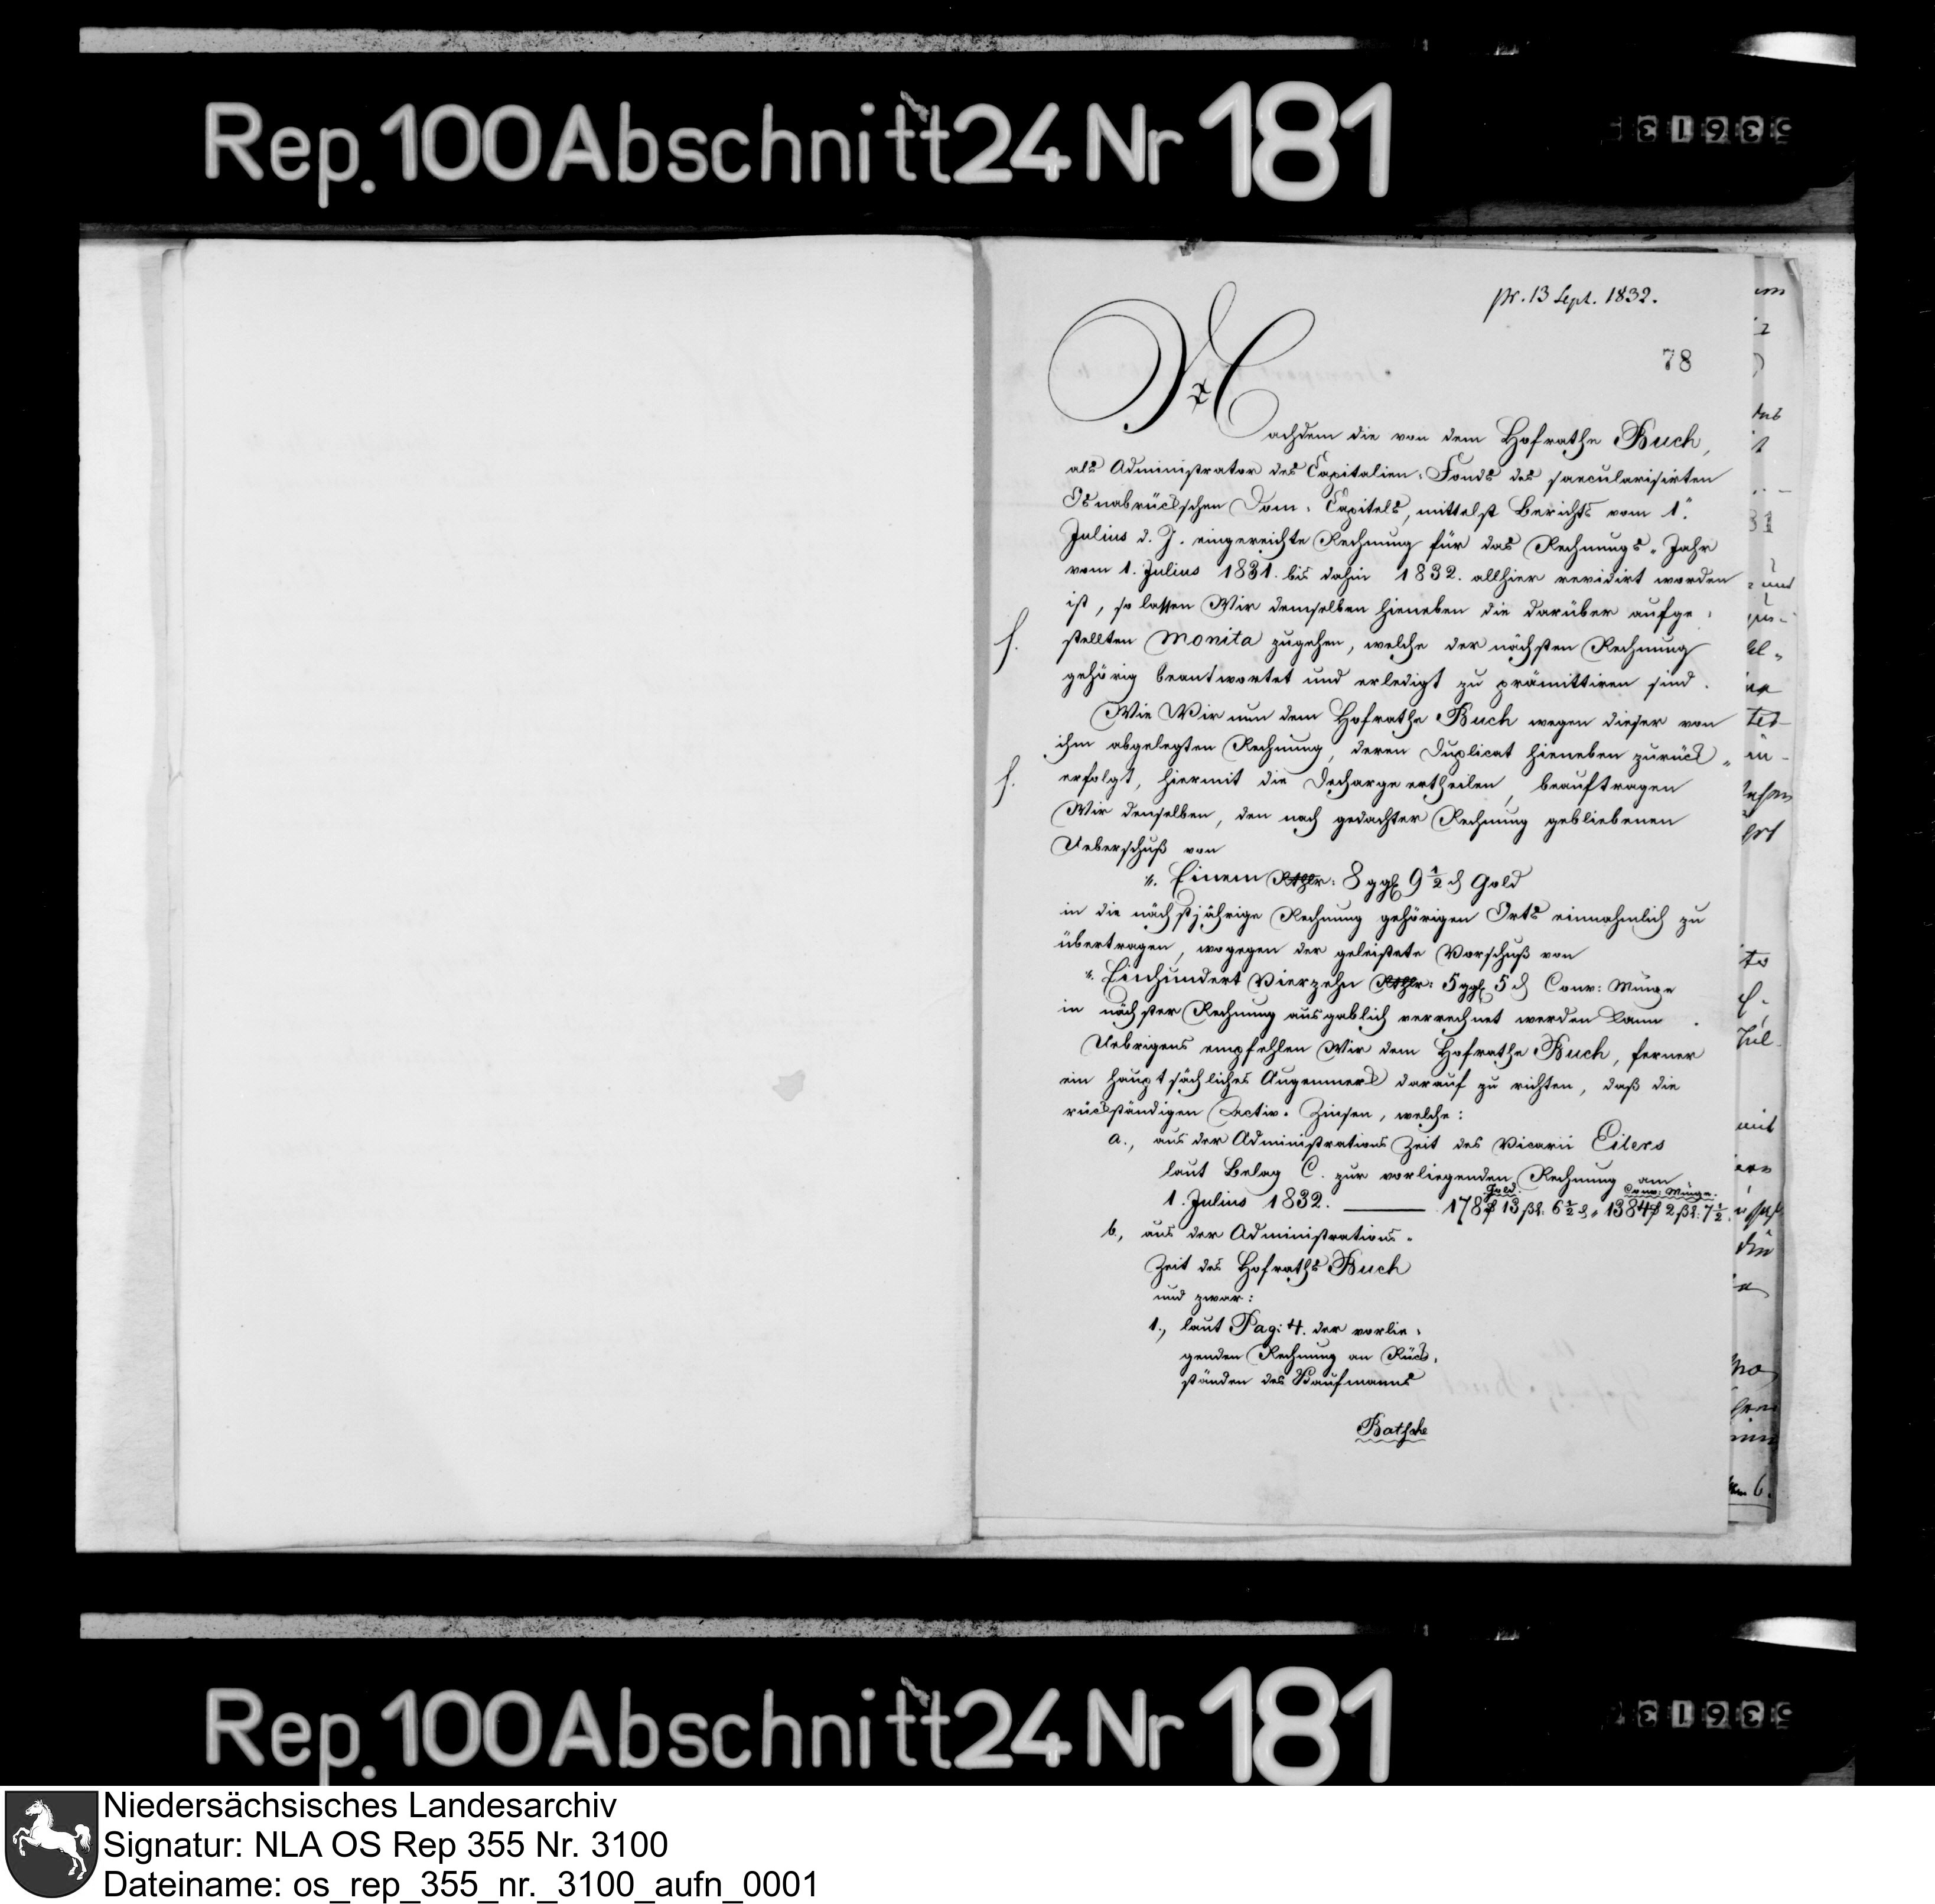 Rep. 100 Abschnitt 24 Nr 181
53613
pr. 13 Sept. 1832.
78
Nachdem die von dem Hofrathe Buch,
als Administrator des Capitalien-Fonds des saecularisirten
Osnabrückschen Dom-Capitels, mittelst Berichts vom 1.
Julius d. J. eingereichte Rechnung für das Rechnungs-Jahr
vom 1. Julius 1831. bis dahin 1832. allhier revidirt worden
ist, so lassen Wir demselben hieneben die darüber aufge-
stellten Monita zugehen, welche der nächsten Rechnung
gehörig beantwortet und erledigt zu prämittiren sind.
Wie Wir nun dem Hofrathe Buch wegen dieser von
ihm abgelegten Rechnung, deren Duplicat hieneben zurück-
erfolgt, hiermit die Decharge ertheilen, beauftragen
Wir denselben, den nach gedachter Rechnung gebliebenen
Ueberschuß von
Einem Rthlr: 8 ggl 9 1/2 d Gold
in die nächstjährige Rechnung gehörigen Orts einnahmlich zu
übertragen, wogegen der geleistete Vorschuß von
Einhundert Vierzehn Rthlr: 5 ggl 5 d Conv: Münze
in nächster Rechnung ausgablich verrechnet werden kann.
Uebrigens empfehlen Wir dem Hofrathe Buch, ferner
ein hauptsächliches Augenmerk darauf zu richten, daß die
rückständigen Activ-Zinsen, welche:
a., aus der Administrations Zeit des Vicarii Eilers
laut Belag C. zur vorliegenden Rechnung am
Gold. Conv: Münze.
1. Julius 1832. 178 ₰ 13 ßl: 6 1/2 d, 1384 ₰ 2 ßl: 7 1/2
b., aus der Administrations-
Zeit des Hofraths Buch
und zwar:
1., laut Pag: 4. der vorlie-
genden Rechnung an Rück-
ständen des Kaufmanns
Batsche
Rep. 100 Abschnitt 24 Nr 181
53613
Niedersächsisches Landesarchiv
Signatur: NLA OS Rep 355 Nr. 3100
Dateiname: os_rep_355_nr._3100_aufn_0001